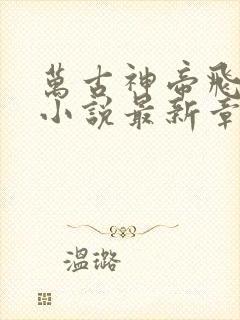 萬古神帝飛
小說最新章
溫璐